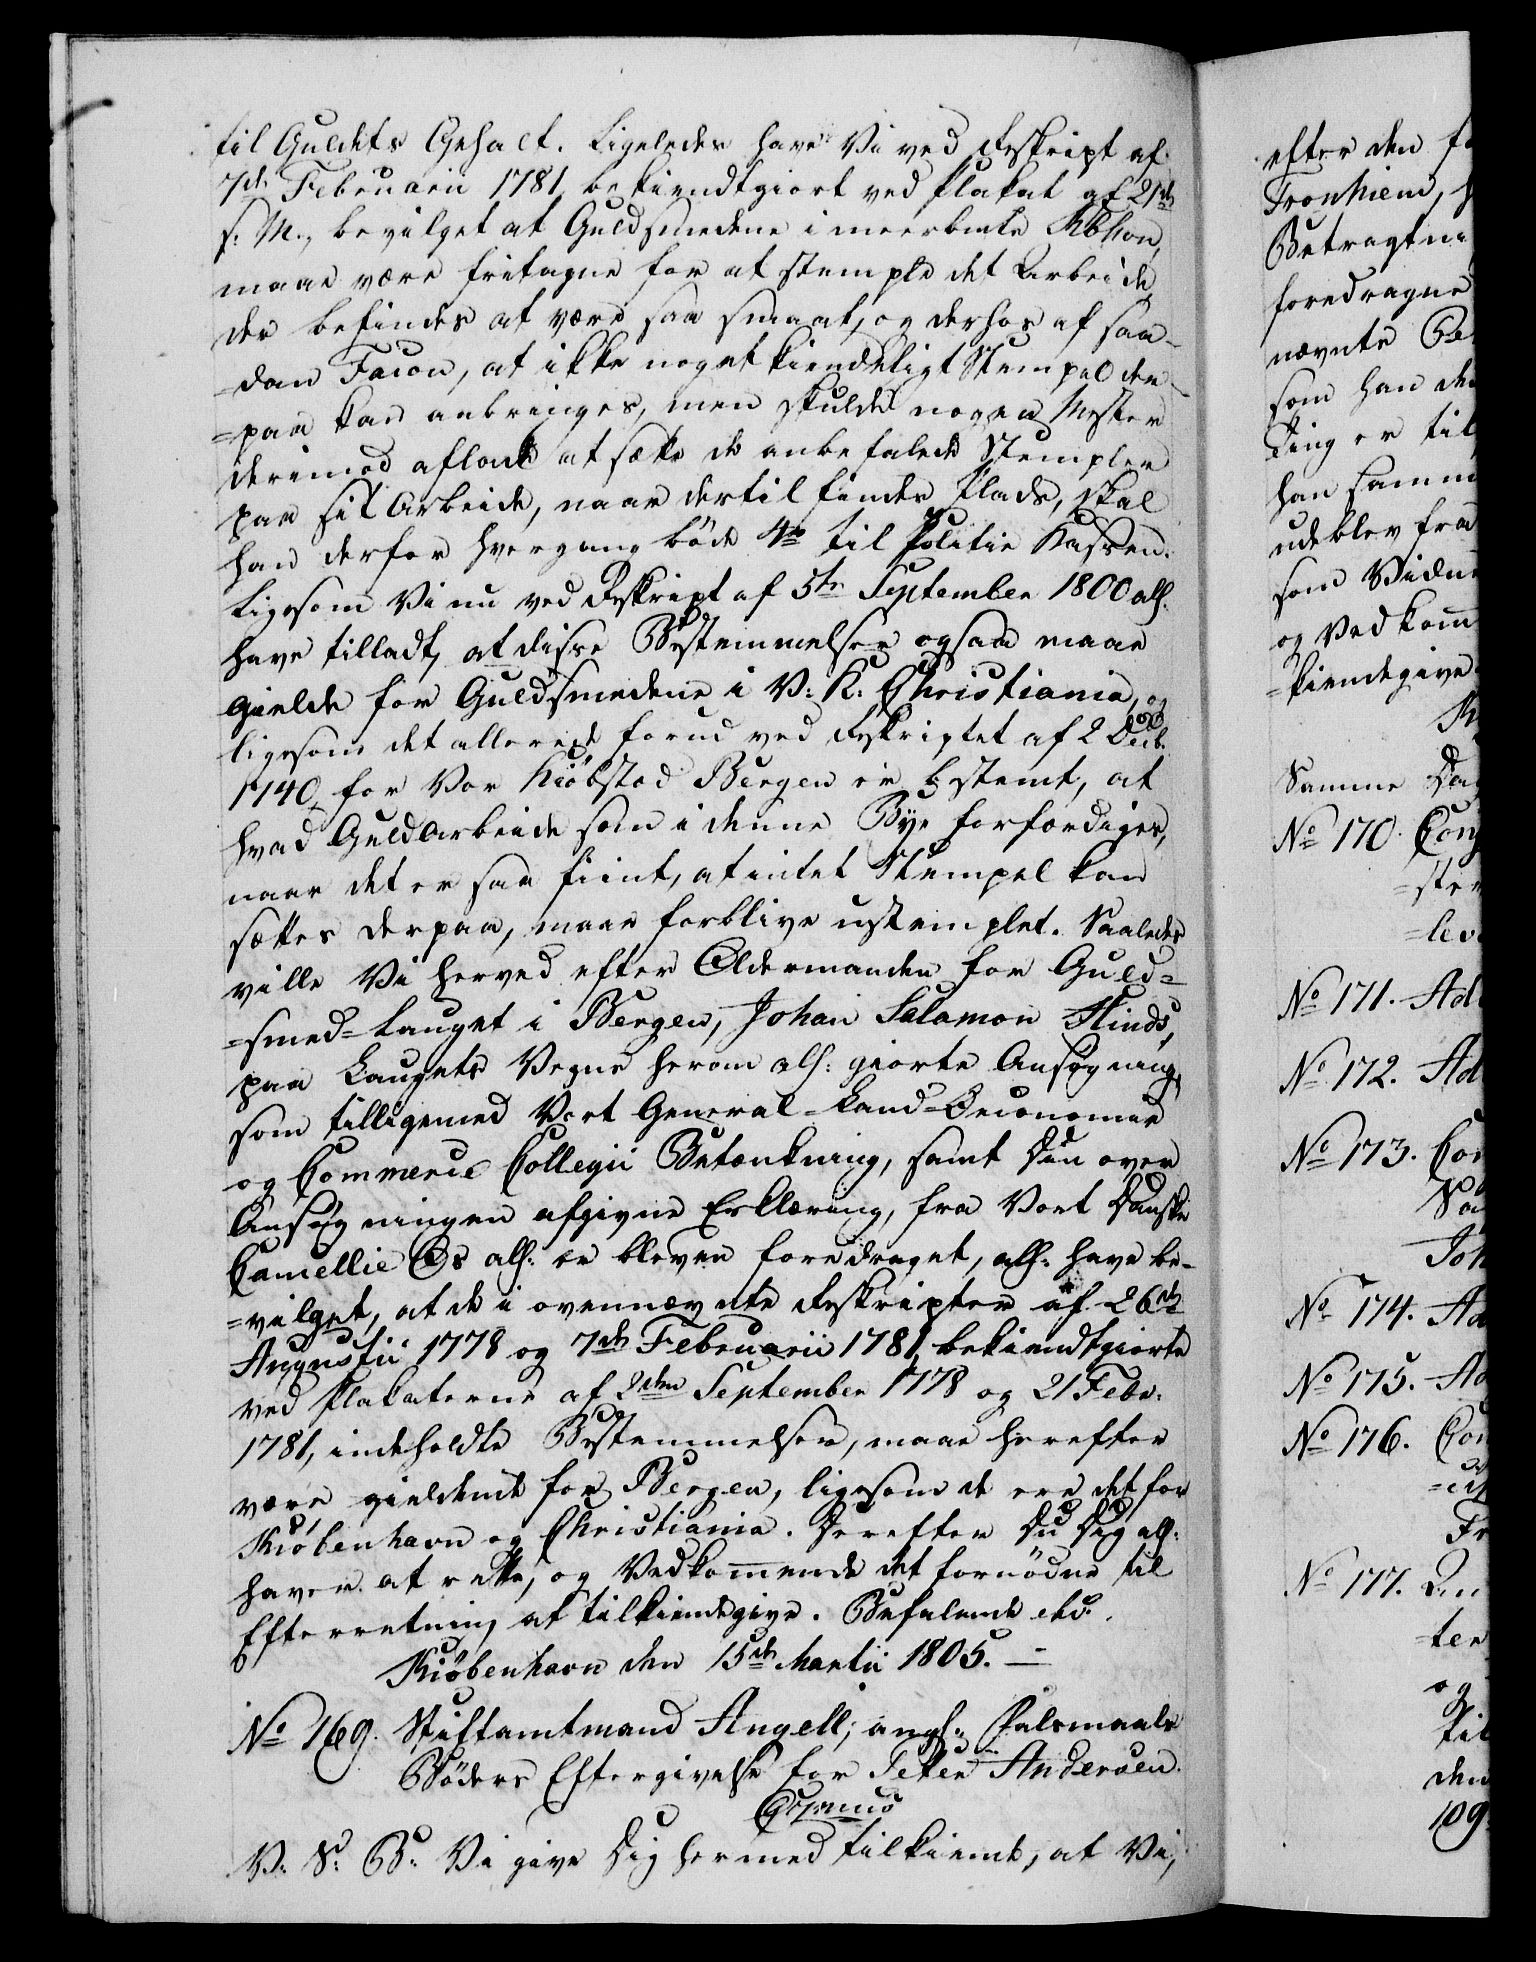 til Guldets Gehalt. Ligeledes have Vi ved Reskript af
7de Februarii 1781, bekiendtgiort ved Plakat af 21de
s: M., bevilget at Guldsmedene i meerbmte Kbhvn,
maae være fritagne for at stemple det Arbeide,
der befindes at være saa smaat, og derhos af saa-
-dan Facon, at ikke noget kiendeligt Stempel der-
=paa kan anbringes, men skulde nogen Mester
derimod aflade at sætte de anbefalede Stempler
paa sit Arbeide, naar dertil findes Plads, skal
han derfor hvergang bøde 4 til Politie Kassen.
Ligesom Vi nu ved Reskript af 5te September 1800 als:
have tilladt, at disse Bestemmelser ogsaa maae
gielde for Guldsmedene i V: K: Christiania, og
ligesom det allerede forud ved Reskriptet af 2 Decb.
1740, for Vor Kiøbstad Bergen er bestemt, at
hvad Guldarbeide som i denne Bye forfærdiges,
naar det er saa fiint, at intet Stempel kan
sættes derpaa, maae forblive ustemplet. Saaledes
ville Vi herved efter Oldermanden for Guld=
=smed=Lauget i Bergen, Johan Salamon Hinds,
paa Laugets Vegne herom als: giorte Ansøgning,
som tilligemed Vort General-Land-Oeconomie
og Commerce Collegii Betænkning, samt Din over
Ansøgningen afgivne Erklæring, fra Vort Danske
Cancellie Os als: er bleven foredraget, als: have be-
=vilget, at de i ovennævnte Reskripter af 26de
Augustii 1778 og 7de Februarii 1781, bekiendtgiorte
ved Plakaterne af 2den September 1778 og 21 Febr:
1781, indeholdte Bestemmelser, maae herefter
være gieldende for Bergen, ligesom de ere det for
Kiøbenhavn og Christiania. Derefter Du Dig als:
haver at rette, og Vedkommende det fornødne til
Efterretning at tilkiendegive. Befalende etc.
Kiøbenhavn den 15de Martii 1805. —
No 169. Stiftamtmand Angell; angs: Faldsmaals
Bøders Eftergivelse for Peter Andersen.
Gratis
V: S: B: Vi give Dig hermed tilkiende, at Vi,
efter den
Tronhiem,
Betragtni
foredragne
nævnte
som han de
Ting er til
han samm
udeblev fra
som Vidne
og Vedkomm
=kiendegive
Samme Dag
No 170. Con
=ste
No 171. Ad
No 172. Ad
No 173. Con
Joh
No 174. Ad
No 175. Ad
No 176. Con
Fr
No 177. An
=ter
og
til
den
109